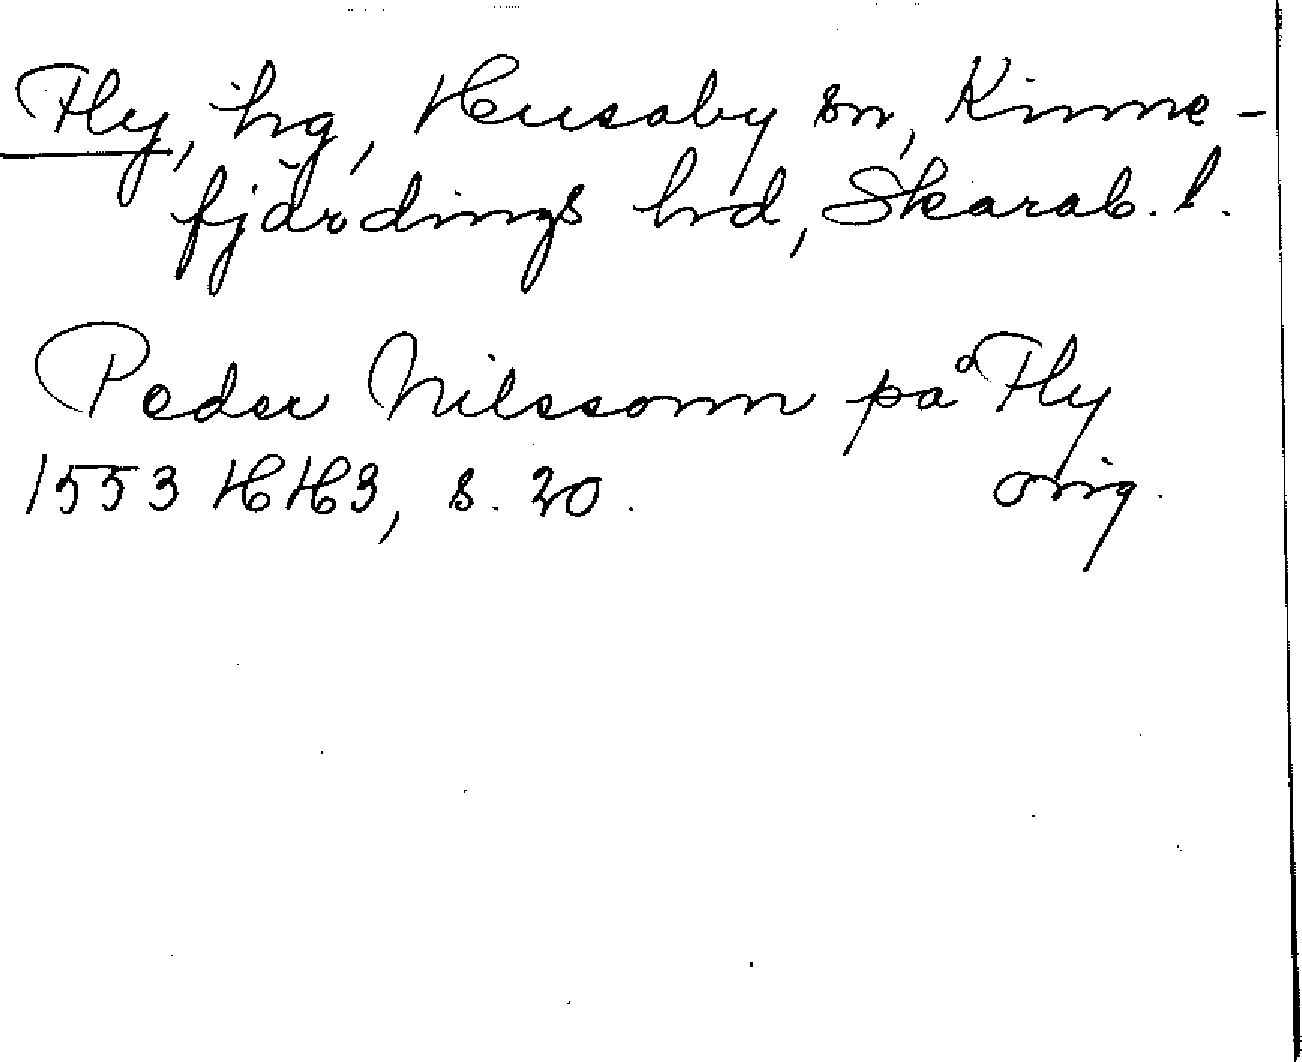 Fly, hg, Husaby sn, Kinne-
fjärdings hrd, Skarab. l.
Peder Nilssonn på Fly
1553 HH3, s. 20. orig.